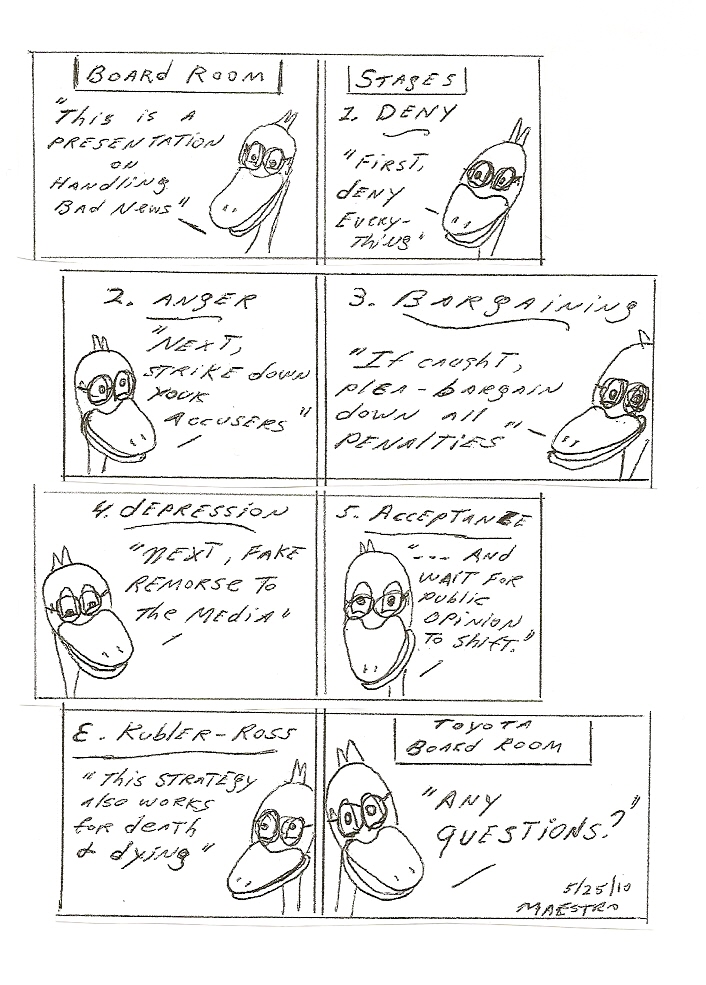 BOARd ROOM
"This is A
PRESENTATION
ON
HANdliNg
BAd NEWS"
STAGES
1. DENY
"FIRST,
dENY
EVERY-
THiNG"
2. ANGER
"NEXT,
STRIKE dOWN
YOUR
ACCUSERS"
3. BARgAiNiNg
"If CAUgHT,
plEA-bARgAiN
dOWN All
PENALTiES"
4. dEPRESSiON
"NEXT, FAKE
REMORSE TO
The MEdiA"
5. ACCEPTANCE
"--- ANd
WAIT FOR
public
OPiNiON
TO Shift."
E. KublER-ROSS
"This STRATEgy
Also WORKS
for dEATH
& dyiNg"
TOYOTA
BOARd ROOM
"ANY
QUESTiONS?"
5/25/10
MAESTRO